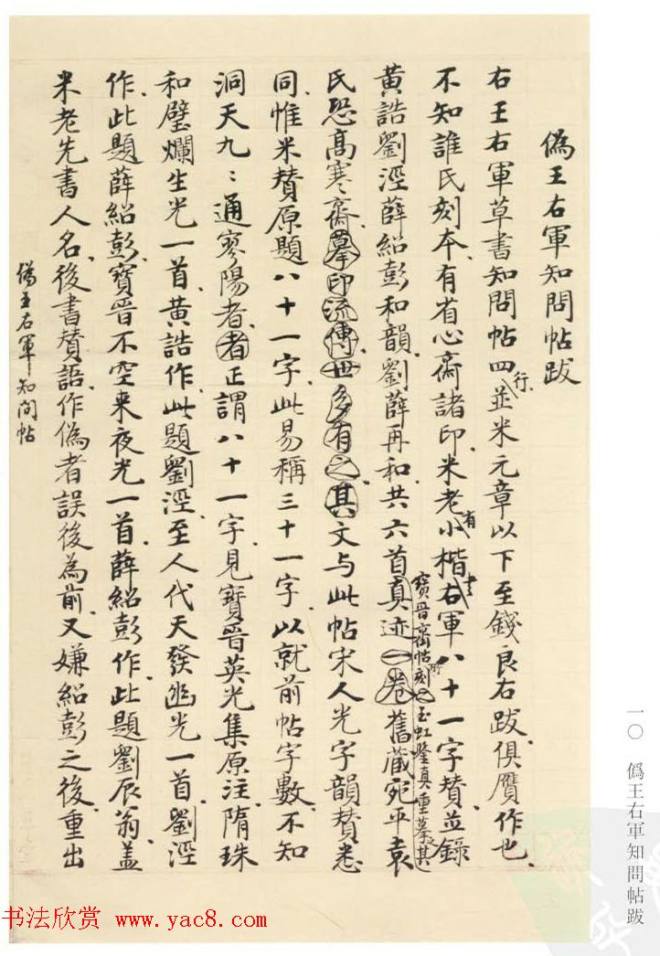 偽王右軍知問帖跋
右王右軍草書知問帖四行並米元章以下至錢良右跋俱贋作也
不知誰氏刻本有省心齋諸印米老有小楷書右軍八十一字賛並錄
黃誥劉涇薛紹彭和韻劉薛再和共六首真迹一卷舊藏宛平袁
寶晉齋帖刻玉虹鑒真重摹其
氏恐高寒齋摹印流傳世多有之其文与此帖宋人光字韻賛悉
同惟米賛原題八十一字此易稱三十一字以就前帖字數不知
洞天九〻通寥陽者者正謂八十一字見寶晉英光集原注隋珠
和璧爛生光一首黃誥作此題劉涇至人代天發幽光一首劉涇
作此題薛紹彭寶晉不空来夜光一首薛紹彭作此題劉辰翁盖
米老先書人名後書賛語作偽者誤後為前又嫌紹彭之後重出
偽王右軍知問帖
一〇 偽王右軍知問帖跋
书法欣赏 www.yac8.com